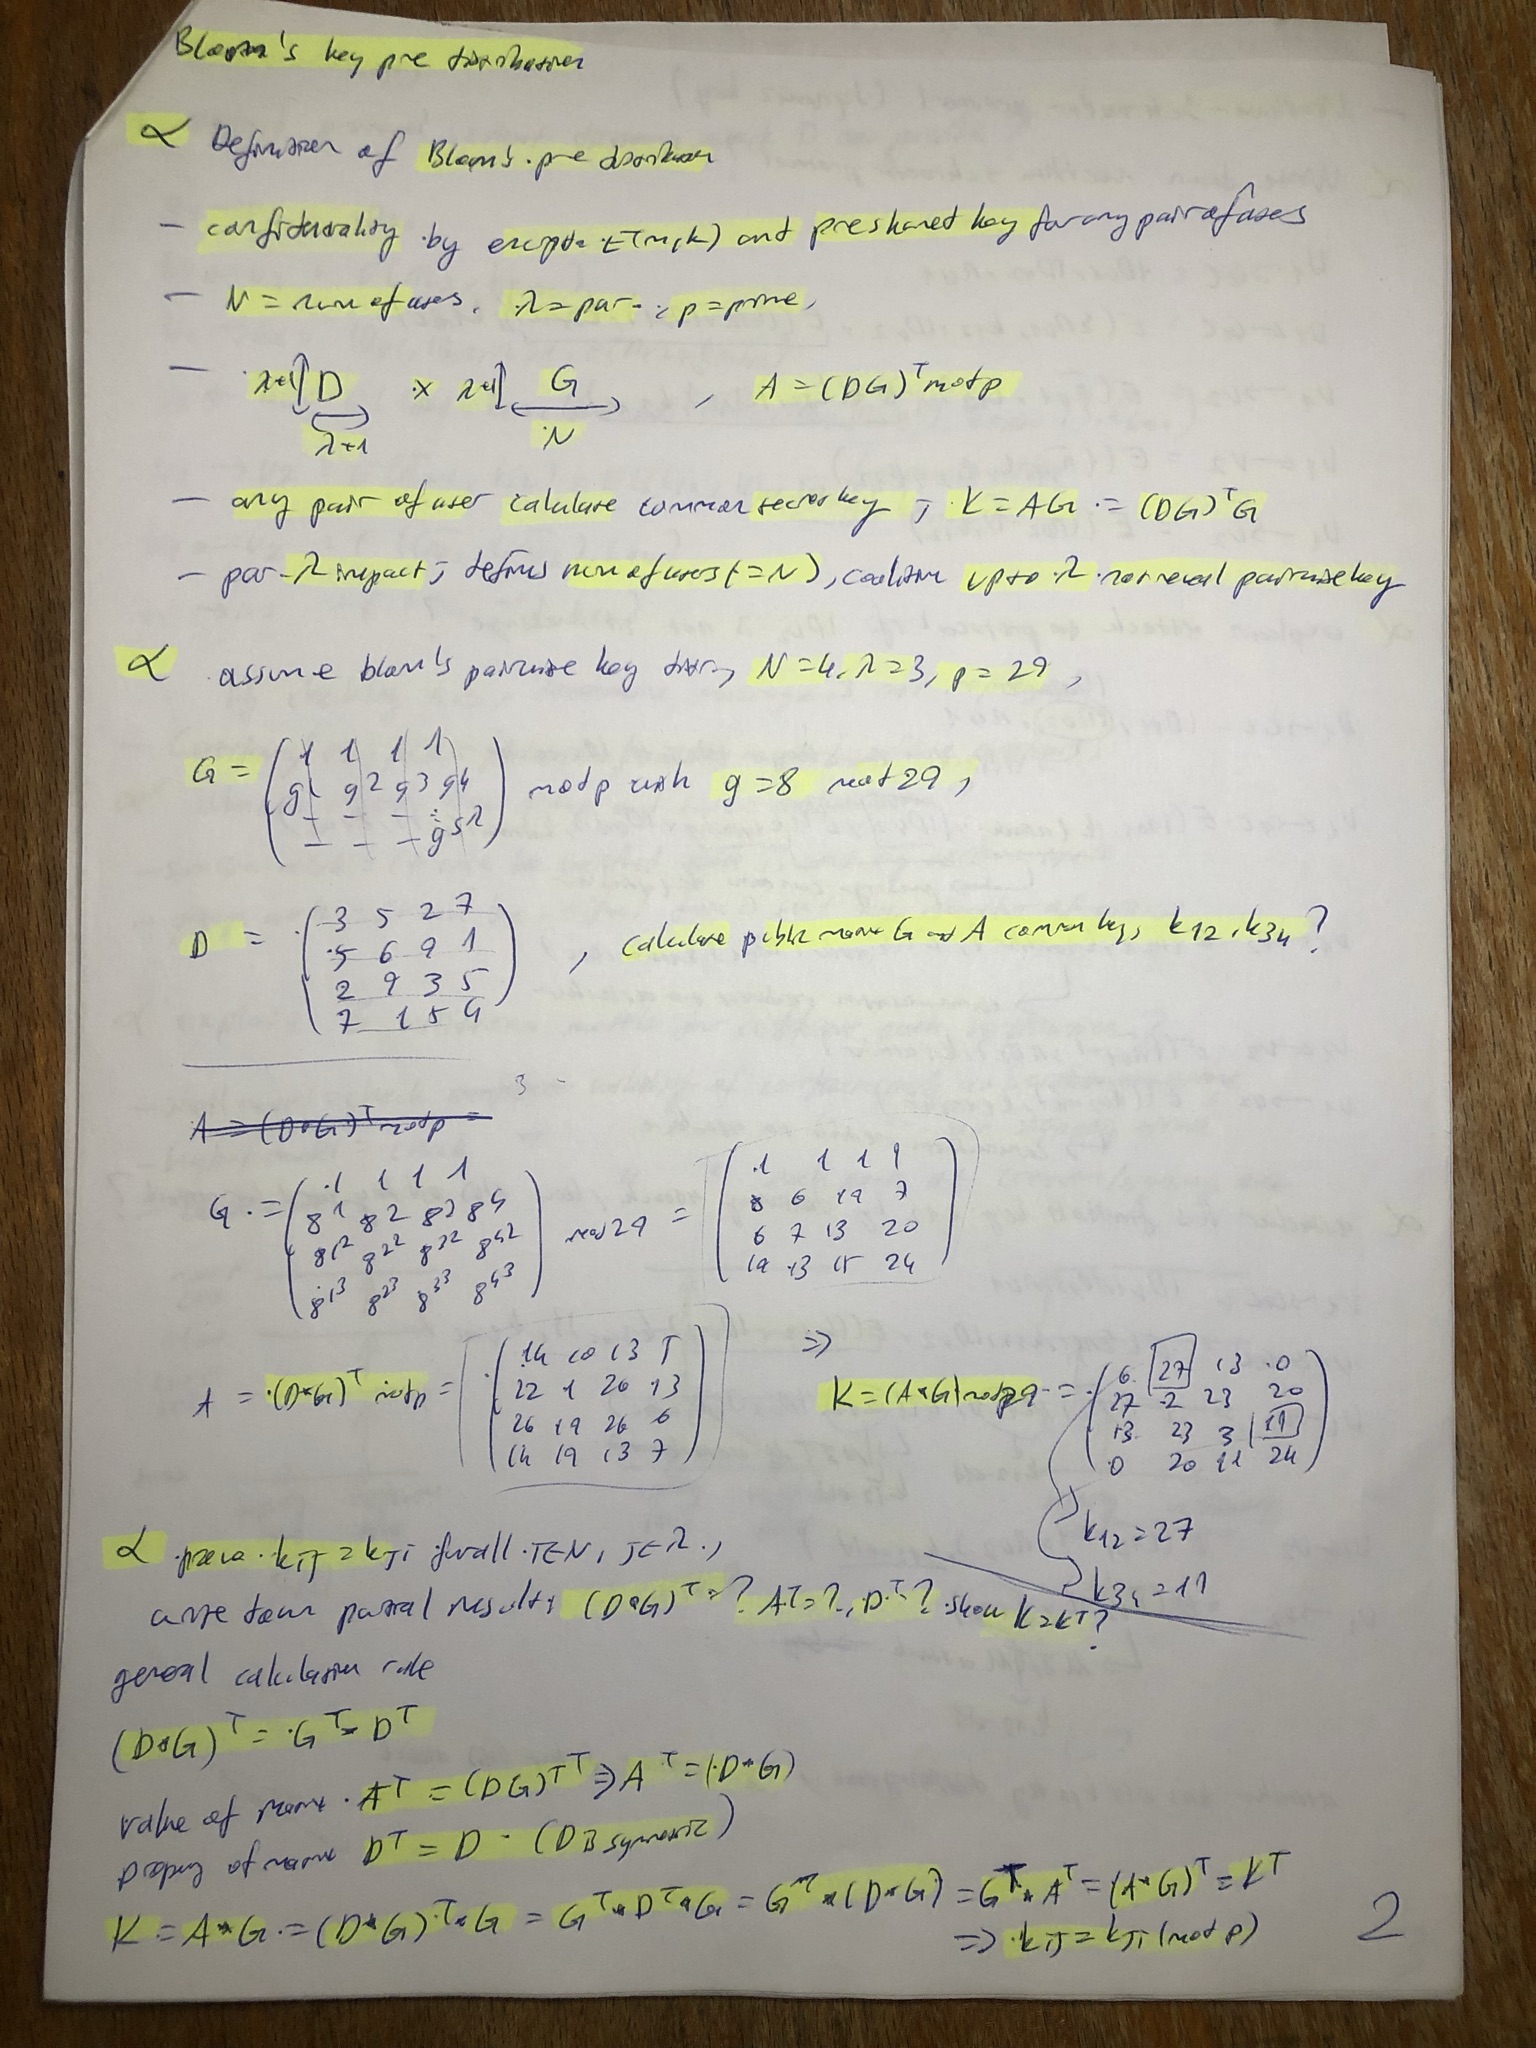 Blom's key pre distribution
α Definition of Blom's pre distribution
- confidentiality by encryption E(m,k) and preshared key for any pair of users
- N = num of users, λ = par., p = prime,
- λ+1 D λ+1 × λ+1 G N , A = (DG)^T mod p
- any pair of user calculate common secret key, K = AG = (DG)^T G
- par. λ impact; defines num of users (=N), coalition up to λ not reveal pairwise key
α assume blom's pairwise key distr, N=4, λ=3, p=29,
G = ( 1 1 1 1
g^1 g^2 g^3 g^4
g^5λ ) mod p with g=8 mod 29,
D = ( 3 5 2 7
5 6 9 1
2 9 3 5
7 1 5 4 ) , calculate public matrix G and A common key, k12, k34?
3
A = (D*G)^T mod p =
G = ( 1 1 1 1
8^1 8^2 8^3 8^4
8^1^2 8^2^2 8^3^2 8^4^2
8^1^3 8^2^3 8^3^3 8^4^3 ) mod 29 = ( 1 1 1 1
8 6 19 7
6 7 13 20
19 13 15 24 )
A = (D*G)^T mod p = ( 14 10 13 5
22 1 26 13
26 19 26 6
14 19 13 7 )
⇒ K = (A*G) mod 29 = ( 6 27 13 0
27 2 23 20
13 23 3 11
0 20 11 24 )
k12 = 27
k34 = 11
α prove kij = kji for all i∈N, j∈λ,
write down partial results (D*G)^T = ? A^T = ?, D^T ? show K=K^T?
general calculation rule
(D*G)^T = G^T * D^T
value of matrix A^T = (DG)^T^T ⇒ A^T = (D*G)
property of matrix D^T = D (D is symmetric)
K = A*G = (D*G)^T*G = G^T*D^T*G = G^T*(D*G) = G^T*A^T = (A*G)^T = K^T
⇒ kij = kji (mod p)
2